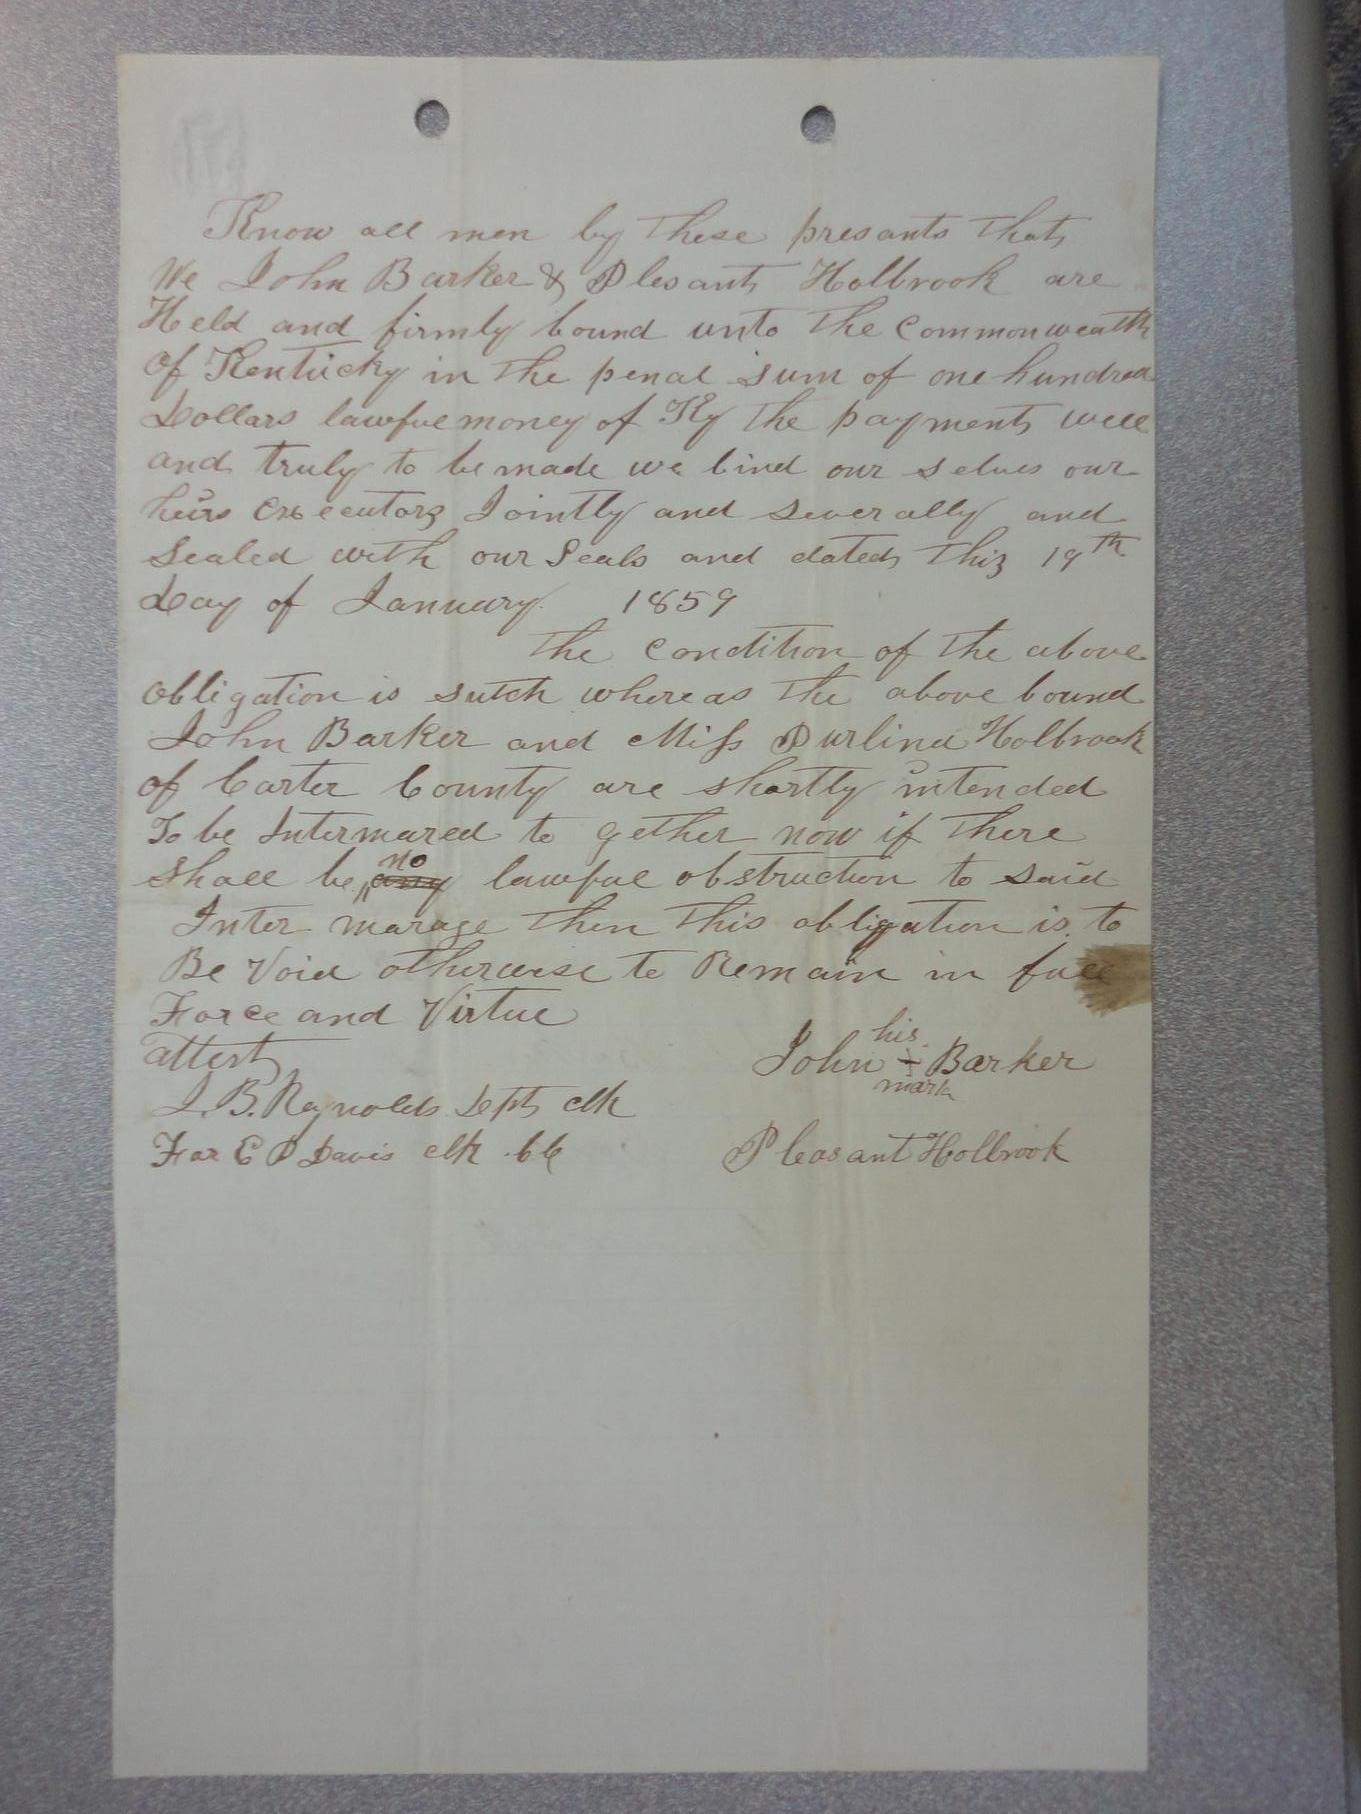 Know all men by these presants that
We John Barker & Plesant Holbrook are
Held and firmly bound unto the Commonwealth
of Kentucky in the penal sum of one hundred
Dollars lawful money of Ky the payment well
and truly to be made we bind our selves our
heirs Executors Jointly and Severally and
Sealed with our Seals and dated this 19th
Day of January 1859
The Condition of the above
obligation is sutch whereas the above bound
John Barker and Miss Purlina Holbrook
of Carter County are shortly intended
To be Intermared to gether now if there
shall be no any lawful obstruction to said
Inter marage then this obligation is to
Be Void otherwise to Remain in full
Force and Virtue
attest
John his + mark Barker
J. B. Reynolds Dept clk
For E P Davis clk CC
Pleasant Holbrook